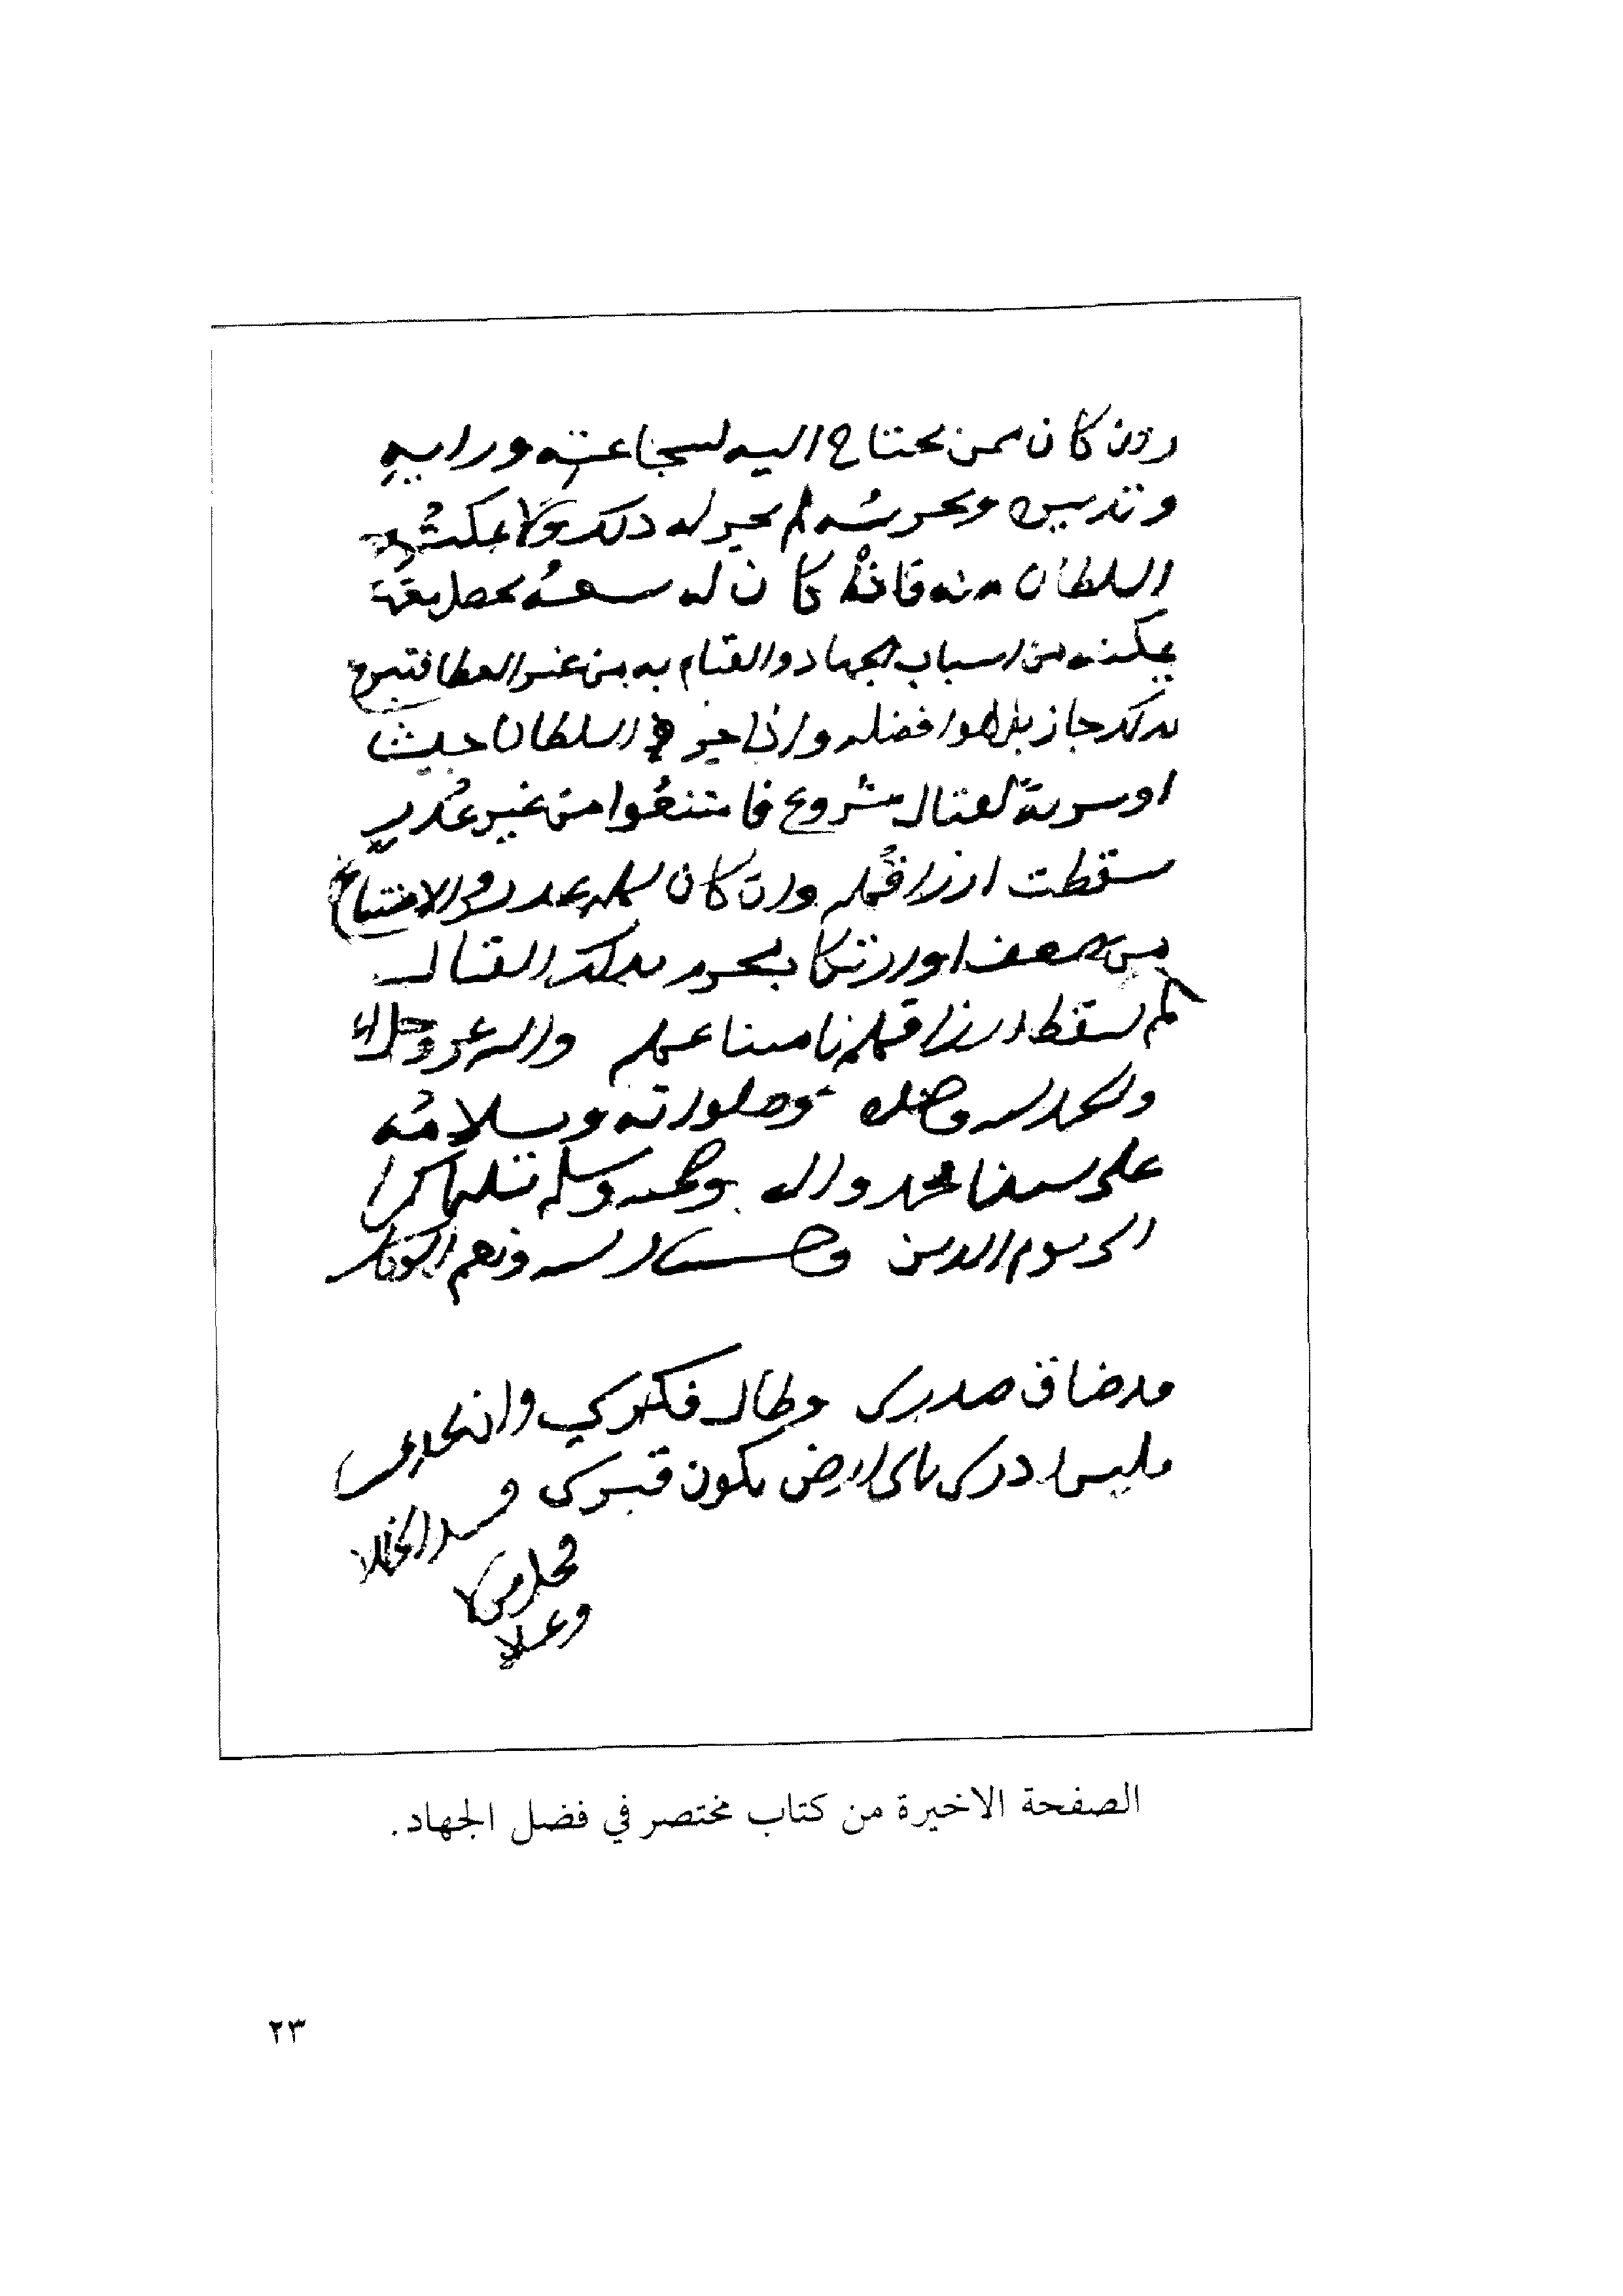 وان كان ممن يحتاج اليه لشجاعته ورايه
وتدبيره لم يجز له ذلك ولا يمكنه
السلطان منه فان كان له سعه
يمكنه من اسباب الجهاد والقيام به من غير العطا فتبرع
بذلك جاز بل هو افضل واذا السلطان جيشا
او سرية لقتال مشروع فامتنعوا من غير عذر
سقطت ارزاقهم وان كان لهم عذر والامتناع
من ضعف او ارتكاب محرم بذلك القتال
لم تسقط ارزاقهم والله عز وجل
والحمد لله وصلواته وسلامه
على سيدنا محمد واله وصحبه وسلم تسليما كثيرا
الى يوم الدين وحسبنا الله ونعم الوكيل
قد ضاق صدري وطال فكري
فليس ادري باي ارض يكون قبري
الصفحة الاخيرة من كتاب مختصر في فضل الجهاد.
٢٣